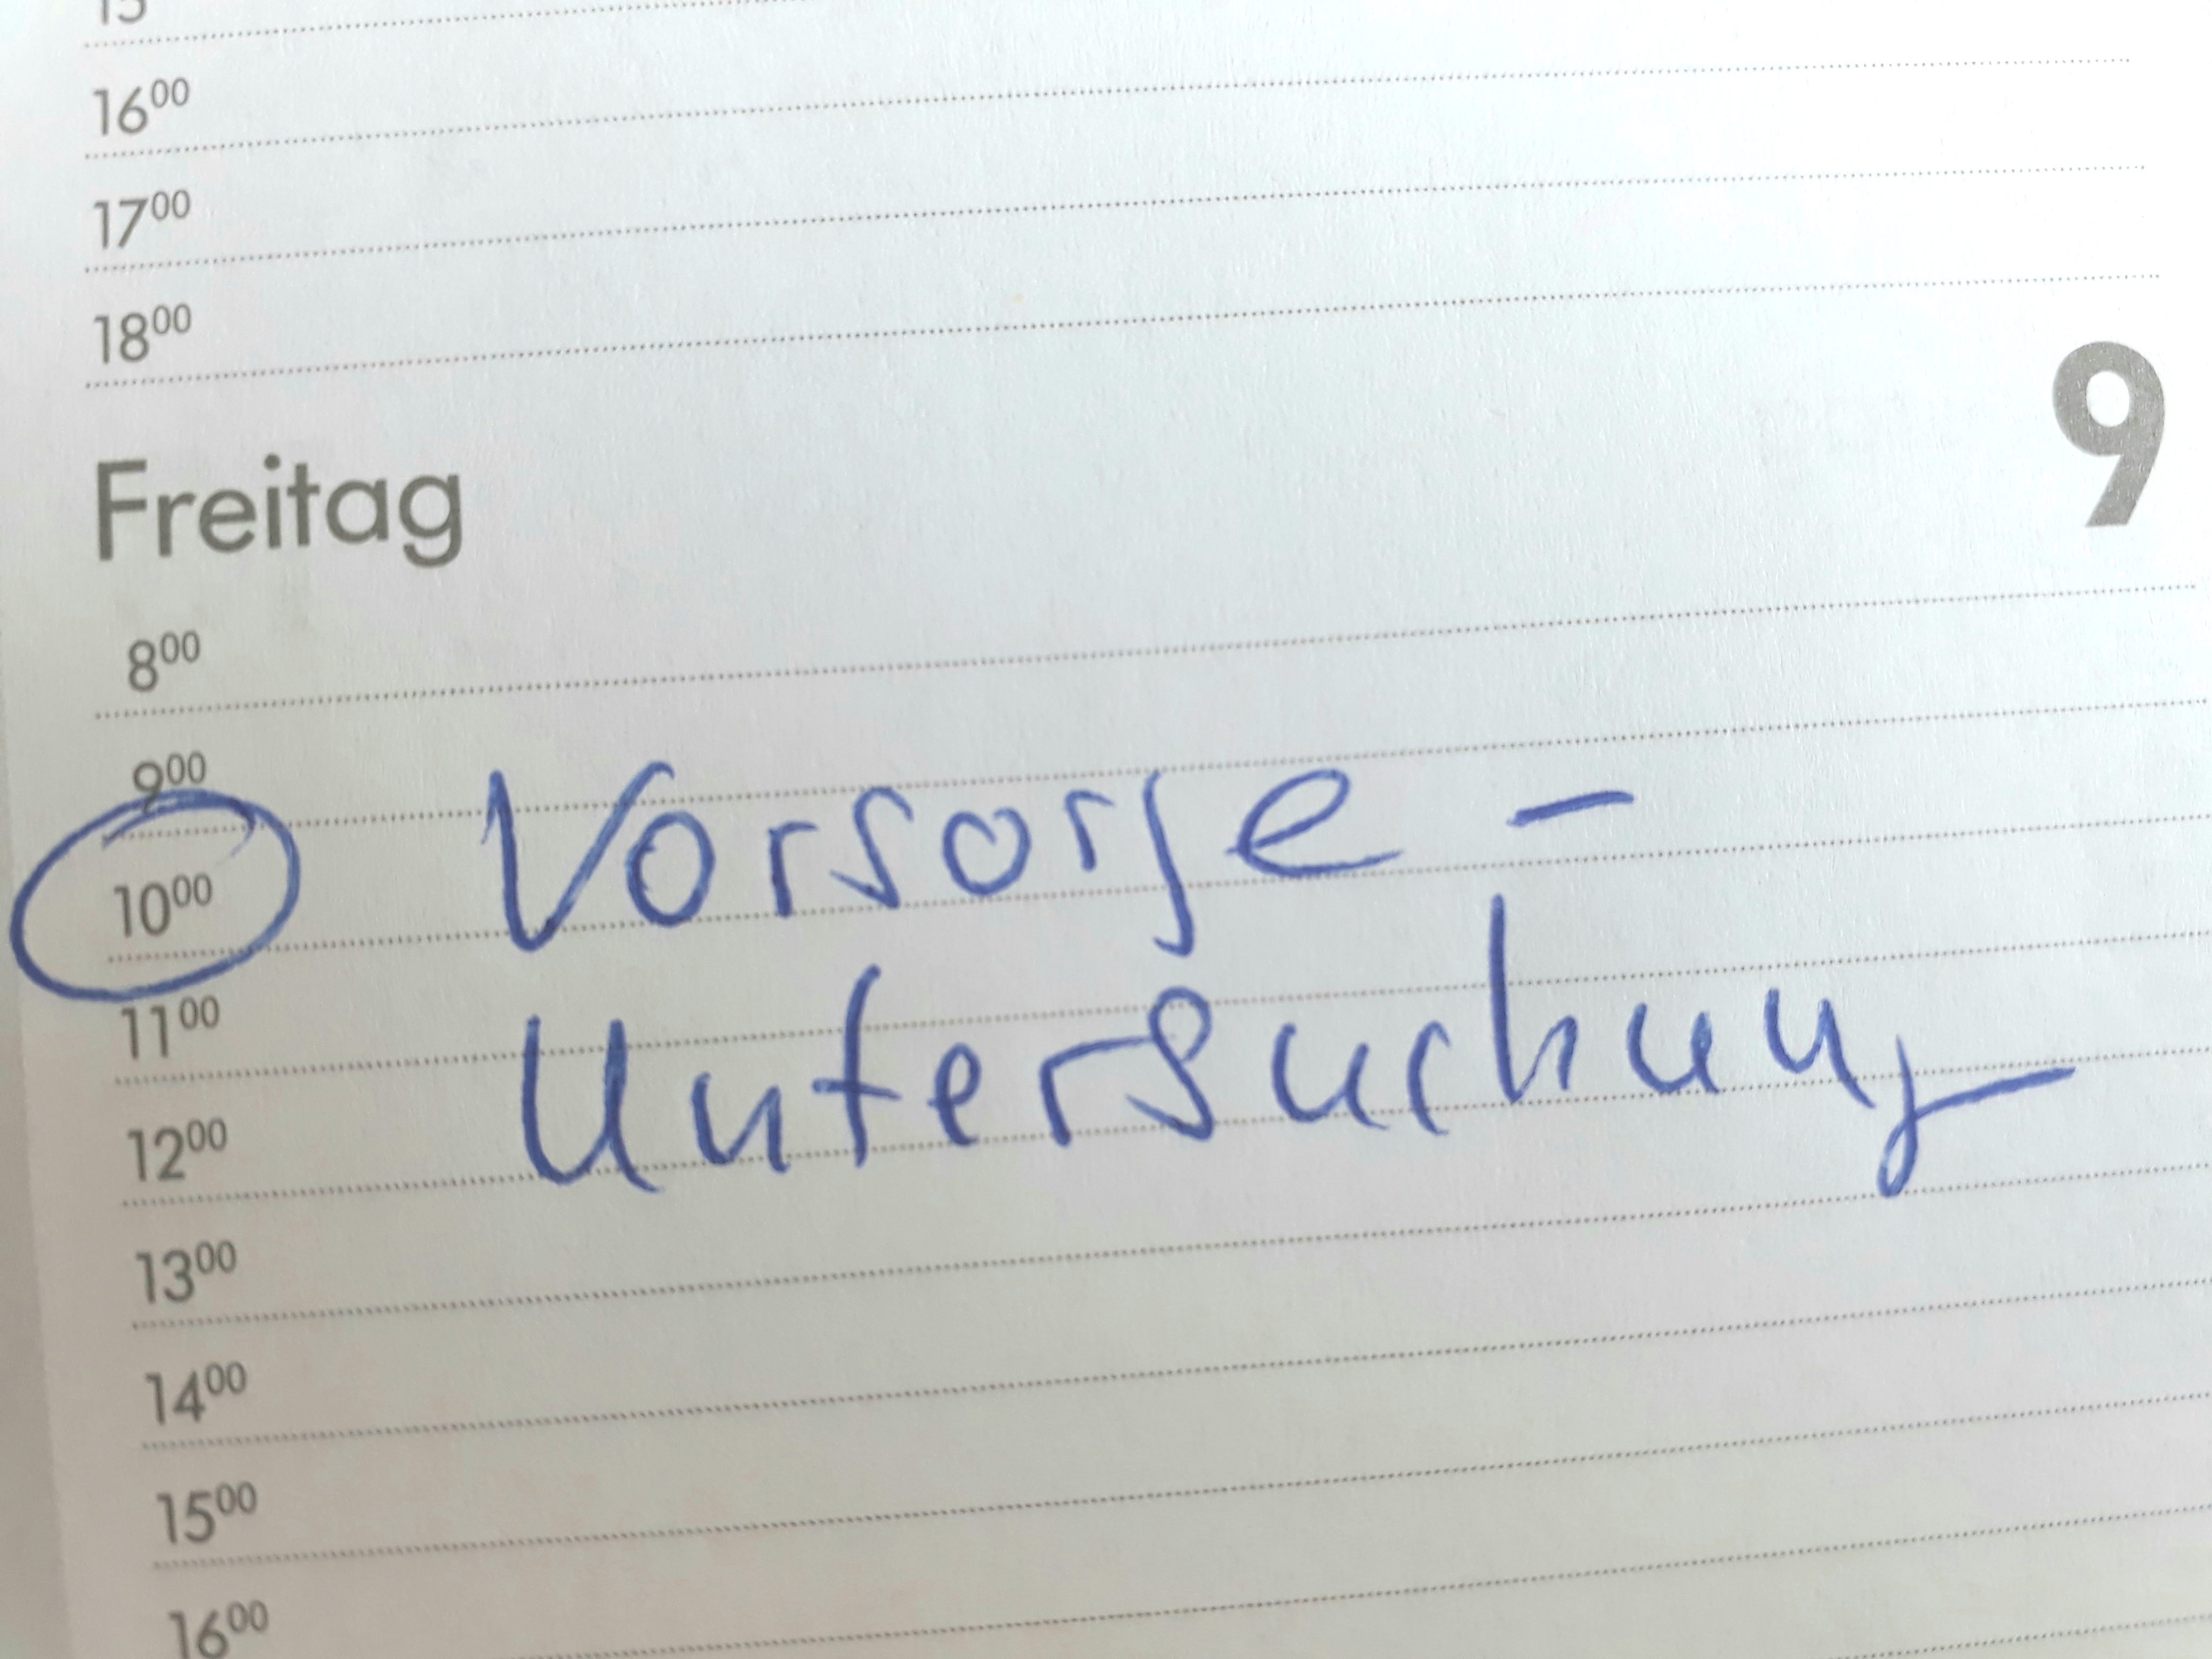 15
16⁰⁰
17⁰⁰
18⁰⁰
Freitag 9
8⁰⁰
9⁰⁰
10⁰⁰ Vorsorge -
11⁰⁰ Untersuchung
12⁰⁰
13⁰⁰
14⁰⁰
15⁰⁰
16⁰⁰